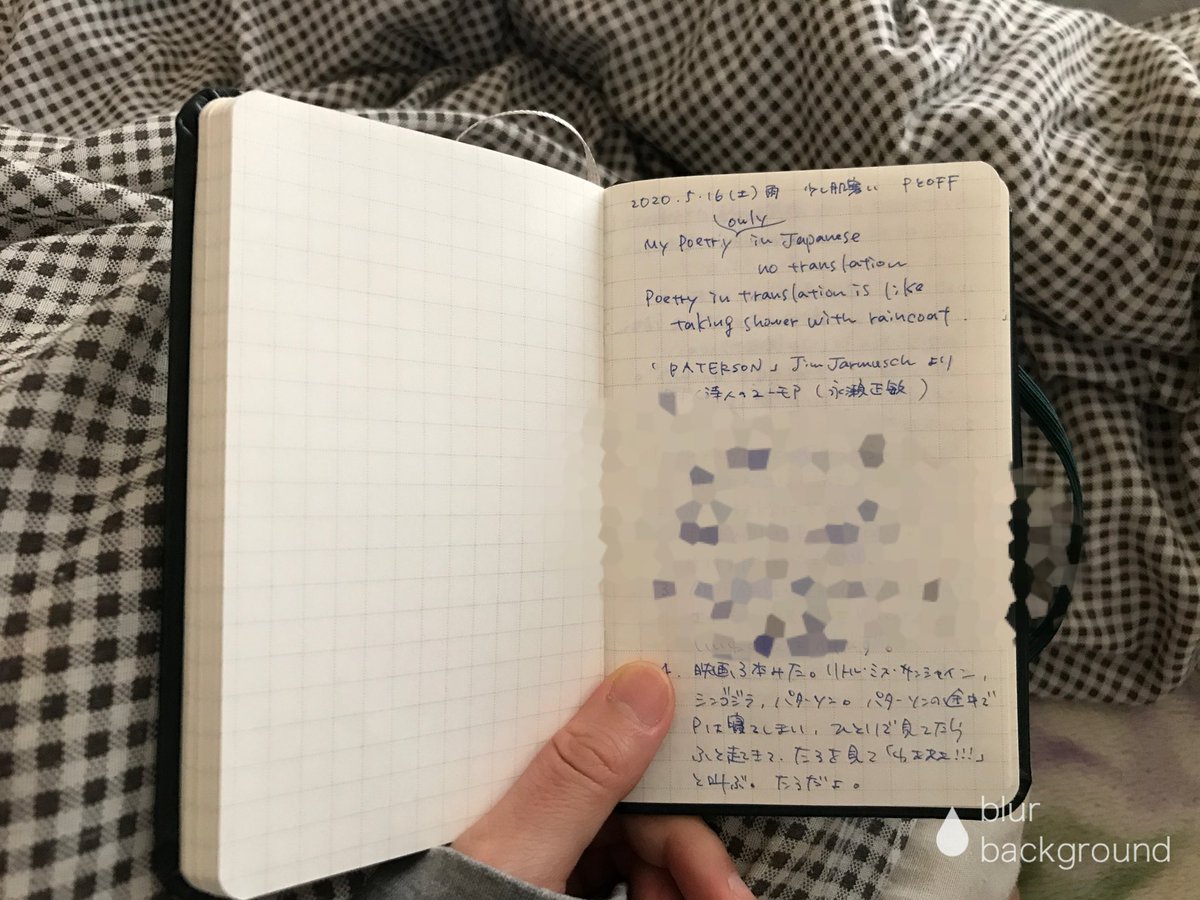 2020.5.16(土)雨 少し肌寒い PとOFF
only
My Poetry in Japanese
no translation
Poetry in translation is like
taking shower with raincoat.
「PATERSON」Jim Jarmuschより
(永瀬正敏)
映画3本みた。リトル・ミス・サンシャイン,
シンゴジラ, パターソン。パターソンの途中で
Pは寝てしまい, ひとりで見てたら
ふと起きて, たろを見て「わああ!!!」
と叫ぶ。たろだよ。
blur
background